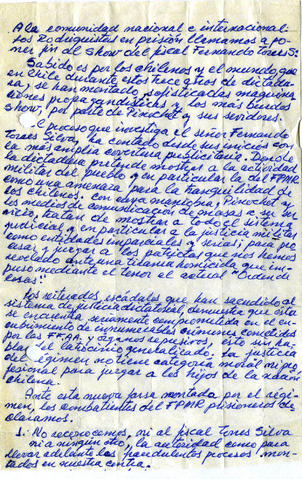 A la comunidad nacional e internacional
los Rodriguistas en prisión llamamos a po-
ner fin al show del fiscal Fernando Torres Si:
Sabido es por los chilenos y el mundo, que
en Chile durante estos trece años de dictadu
ra, se han montado sofisticadas maquina
ciones propagandísticas y los más burdos
show, por parte de Pinochet y sus servidores.
El proceso que investiga el señor Fernando
Torres Silva, ha contado desde sus inicios con
la más amplia cobertura publicitaria. Donde
la dictadura pretende mostrar a la actividad
militar del pueblo y en particular la del FPMR
como una amenaza para la tranquilidad de
los chilenos. Con cuya maniobra, Pinochet y
los medios de comunicación de masas a su ser
vicio, tratan de mostrar a todo el sistema
judicial y en particular a la justicia militar
como entidades imparciales y serias; para pro
cesar y juzgar a los patriotas que nos hemos
revelado ante una tiranía homicida que im-
puso mediante el terror el actual "Orden de
cosas".
Los reiterados escándalos que han sacudido al
sistema de justicia dictatorial, demuestra que esta
se encuentra seriamente comprometida en el en-
cubrimiento de innumerables crímenes cometidos
por las FFAA. y órganos represivos, esto sin ha-
blar del latrocinio generalizado. La justicia
del régimen no tiene categoría moral ni pro-
fesional para juzgar a los hijos de la nación
chilena.
Ante esta nueva farsa montada por el régi-
men, los combatientes del FPMR prisioneros de-
claramos.
1. No reconocemos, ni al fiscal Torres Silva
ni a ningún otro, la autoridad como para
llevar adelante los fraudulentos procesos mon-
tados en nuestra contra.